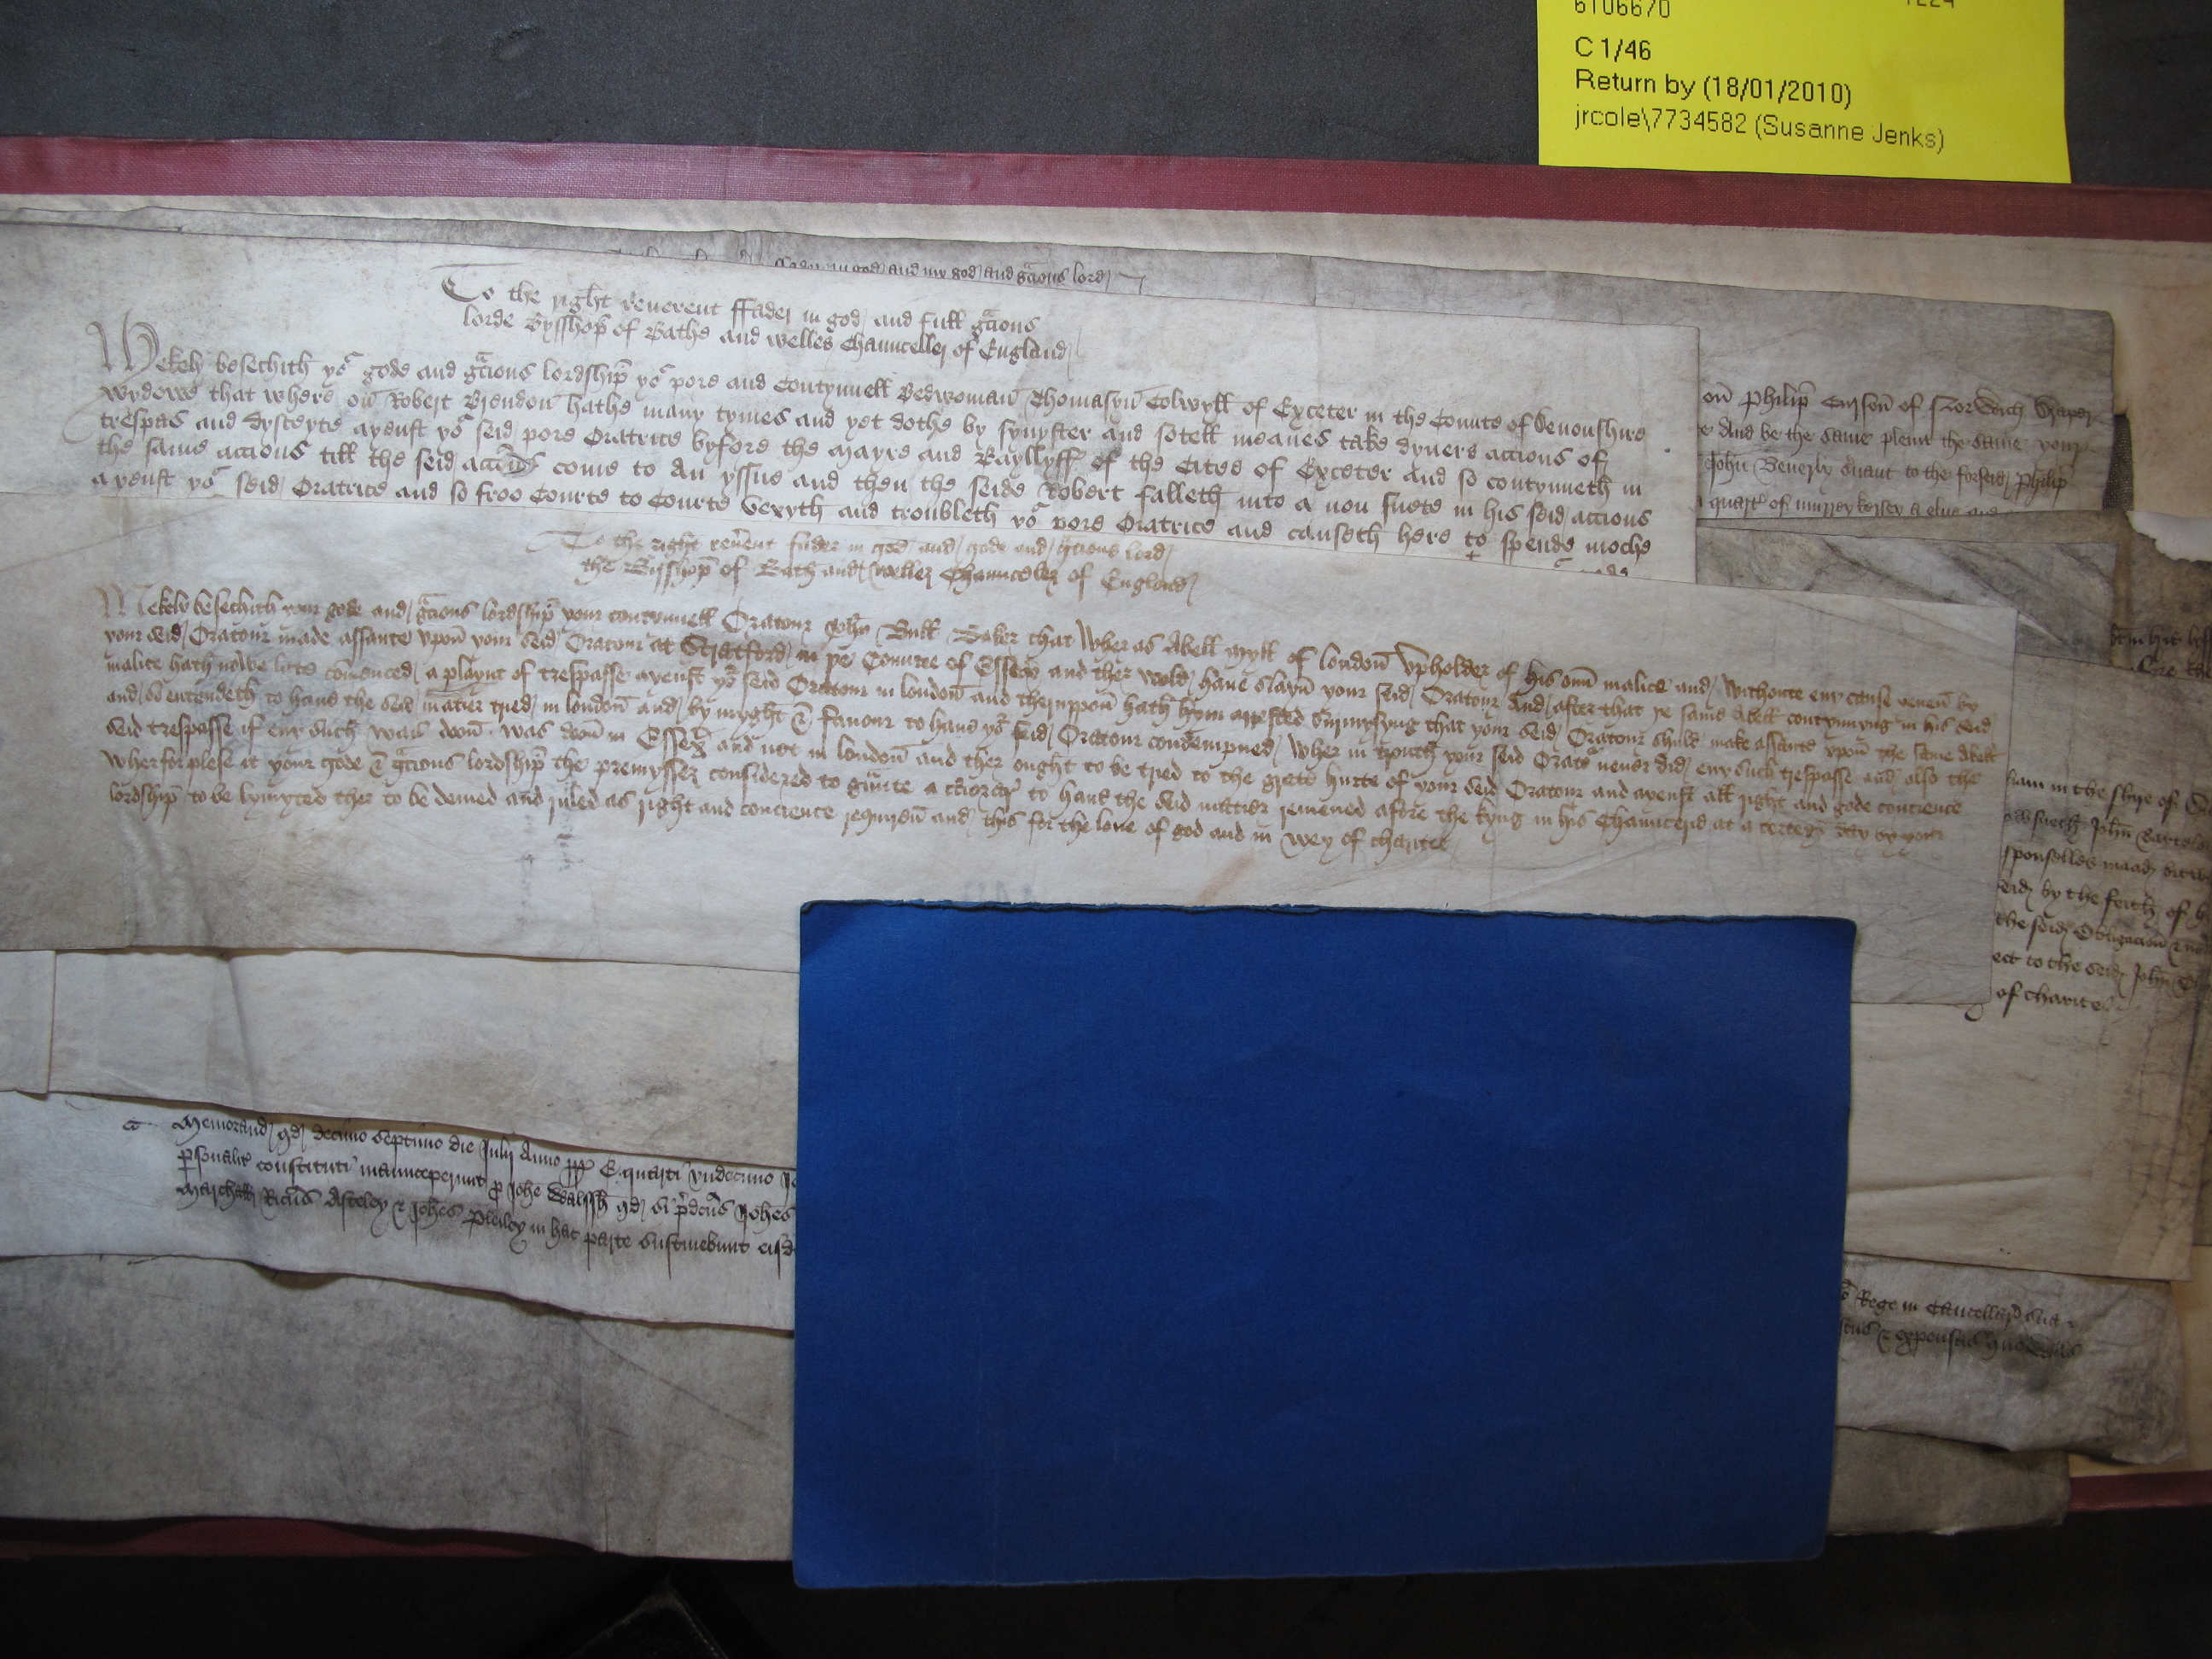 6106670 1224
C 1/46
Return by (18/01/2010)
jrcole\7734582 (Susanne Jenks)
in god and my god and gracious lord
To the right reuerent ffader in god and full gracious
lorde Bysshop of Bathe and welles Chaunceller of England
Mekely besechith yor gode and gracious lordship yor pore and Contynuell Bedwoman Thomasyn Colwyll of Exceter in the Counte of Deuonshire
wydowe that where on Robert Brendon hathe many tymes and yet dothe by synyster and sotell meanes take dyuers accions of
trespas and dysceyte ayenst yor seid pore Oratrice byfore the Mayre and Bayllyff of the Citee of Exceter and so contynueth in
the same accions till the seid accions come to an yssue and then the seide Robert falleth into a non suete in his seid accions
ayenst yor seid Oratrice and so froo Courte to Courte vexyth and troubleth yor pore Oratrice and causeth here to spende moche
on Philip Curson of Norwich
And be the same the same your
John Beuerly to the forseid Philip
of murrey kersey
To the right reuerent fader in god and gode and gracious lord
the Bysshop of Bath and Weller Chaunceler of England
Mekely besechith your gode and gracious lordship your contynuell Oratour John Bull Baker that Wher as Abell Myll of london Vpholder of his oun malice and withoute eny cause yeuen by
your seid Oratour made assaute vpon your seid Oratour at Stratford in þe Countee of Essex and ther wold haue slayn your seid Oratour And after that þe same Abell contynuyng in his seid
malice hath nowe late comenced a playnt of trespasse ayenst yor seid Oratour in london and theruppon hath hym arrested Surmysyng that your seid Oratour shuld make assaute vpon the same Abell
and so entendeth to haue the seid matier tried in london and by myght & fauour to haue yor seid Oratour condempned Wher in trouth your seid Orator neuer did eny such trespasse and also the
seid trespasse if eny such was doon was doon in Essex and not in london and ther ought to be tried to the grete hurte of your seid Oratour and ayenst all right and gode concience
Wherfor plese it your gode & gracious lordship the premysses considered to graunte a to haue the seid matier remeued afore the kyng in his Chauncerie at a certeyn day by your
lordship to be lymyted ther to be demed and ruled as right and concience requiren and this for the loue of god and in wey of charitee
in the shire of
John
sponselles maad
seid by the feith of
the seid Obligacion
to the seid John
of charite
Memorand qd decimo septimo die Julij Anno RR E. quarti vndecimo
personalit constituti manuceperunt pro Johe Walssh qd si predcus Johes
Ricus Asteley & Johes in hac parte sustinebunt
Rege in Cancellar sua
& expensas